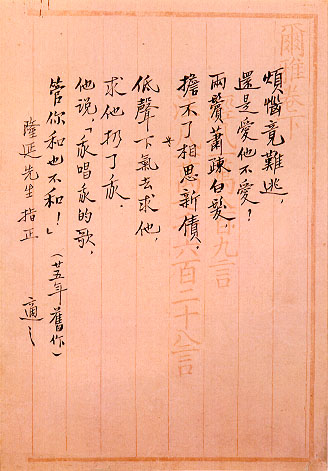 爾雅
煩惱竟難逃,
還是愛他不愛?
兩鬢蕭疎白髮,
擔不了相思新債,
低聲下氣去求他,
求他扔了我.
他說,「我唱我的歌,
管你和也不和!」(廿五年舊作)
隆延先生指正 適之
百九言
六百二十八言